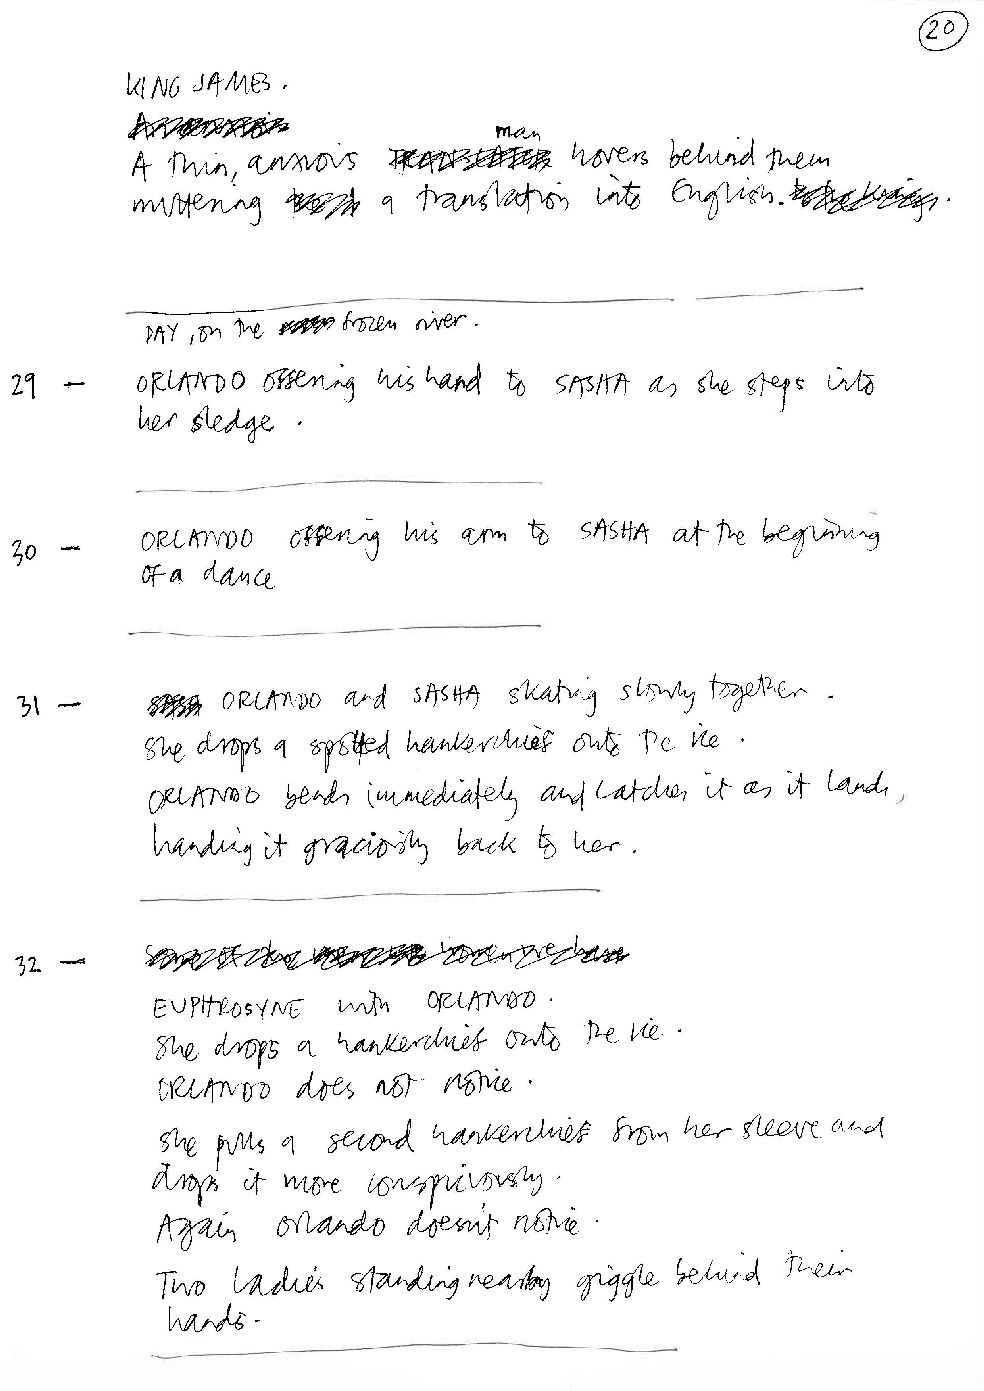 20
KING JAMES.
man
A thin, anxious hovers behind them
muttering a translation into English.
DAY, on the frozen river.
29 - ORLANDO offering his hand to SASHA as she steps into
her sledge.
30 - ORLANDO offering his arm to SASHA at the beginning
of a dance
31 - ORLANDO and SASHA skating slowly together.
She drops a spotted hankerchief onto the ice.
ORLANDO bends immediately and catches it as it lands,
handing it graciously back to her.
32 -
EUPHROSYNE with ORLANDO.
She drops a hankerchief onto the ice.
ORLANDO does not notice.
She pulls a second hankerchief from her sleeve and
drops it more conspicuously.
Again Orlando doesn't notice.
Two ladies standing nearby giggle behind their
hands.